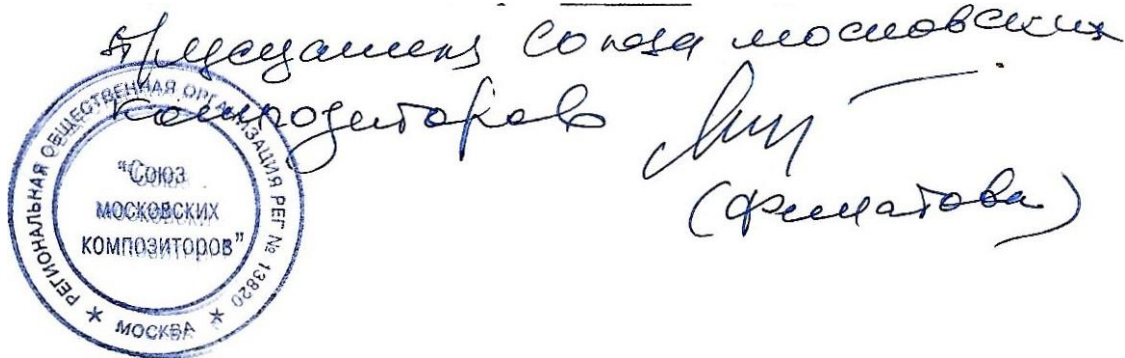 Союза московских
композиторов
(Филатова)
РЕГИОНАЛЬНАЯ ОБЩЕСТВЕННАЯ ОРГАНИЗАЦИЯ РЕГ № 13820
МОСКВА
"Союз
московских
композиторов"